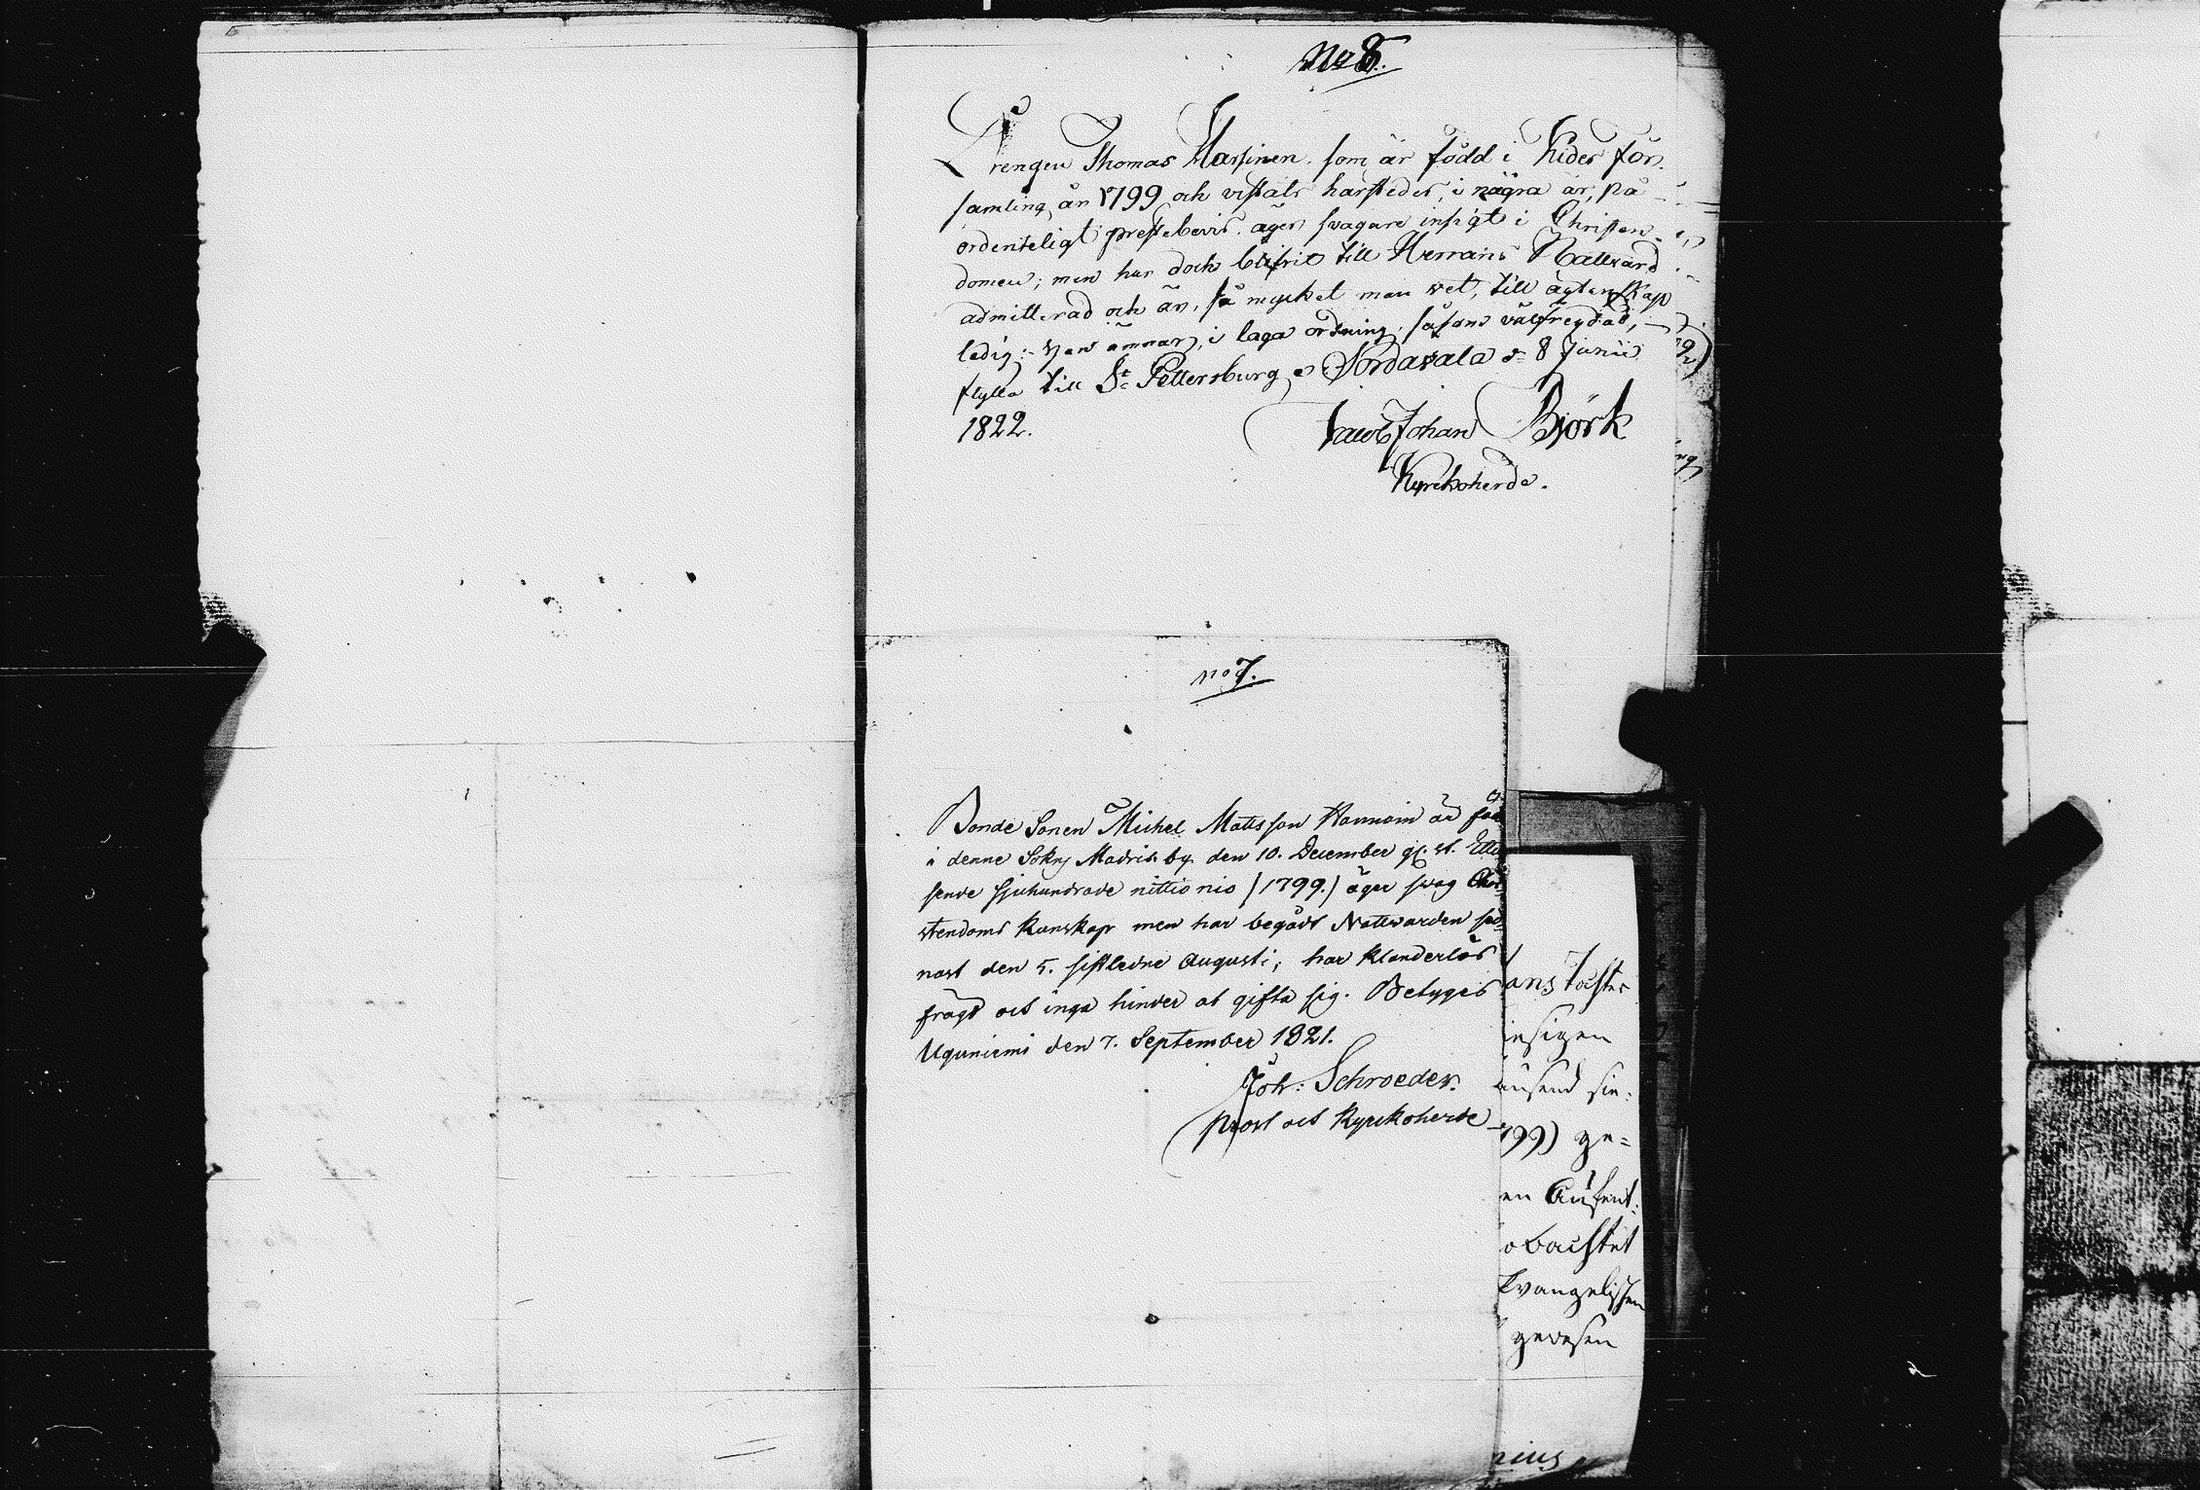 No 8.
Drengen Thomas Harsinen som är född i Kides för-
samling år 1799 och vistats härstedes i några år, på
ordenteligt prestebevis, äger svagare insigt i Christen-
domen; men har dock blifvit till Herrans Nattvard
admitterad och är, så mycket man vet, till ägtenskap
ledig; Han ämnar, i laga ordning, såsom välfreydad,
flytta till St Pettersburg. Sordavala d. 8 Junii
1822.
Jacob Johan Björk
Kyrckoherde.
no 7.
Bonde Sonen Michel Mattsson Hannoin är född
i denne Sokns Madris by den 10. December gl. st. Ettu
sende Sjuhundrade nittio nio /1799./ äger svag Chri-
stendoms kunskap men har begådt Nattvarden sed-
nast den 5. sistledne Augusti; har klanderlös
frägd och inga hinder at gifta sig. Betygas
Uguniemi den 7. September 1821.
Joh: Schroeder.
Prost och Kyrckoherde
ans Tochter
iesigen
ausend sie-
799) ge-
en Aufent-
obachtet
Evangelischen
gewesen
nius